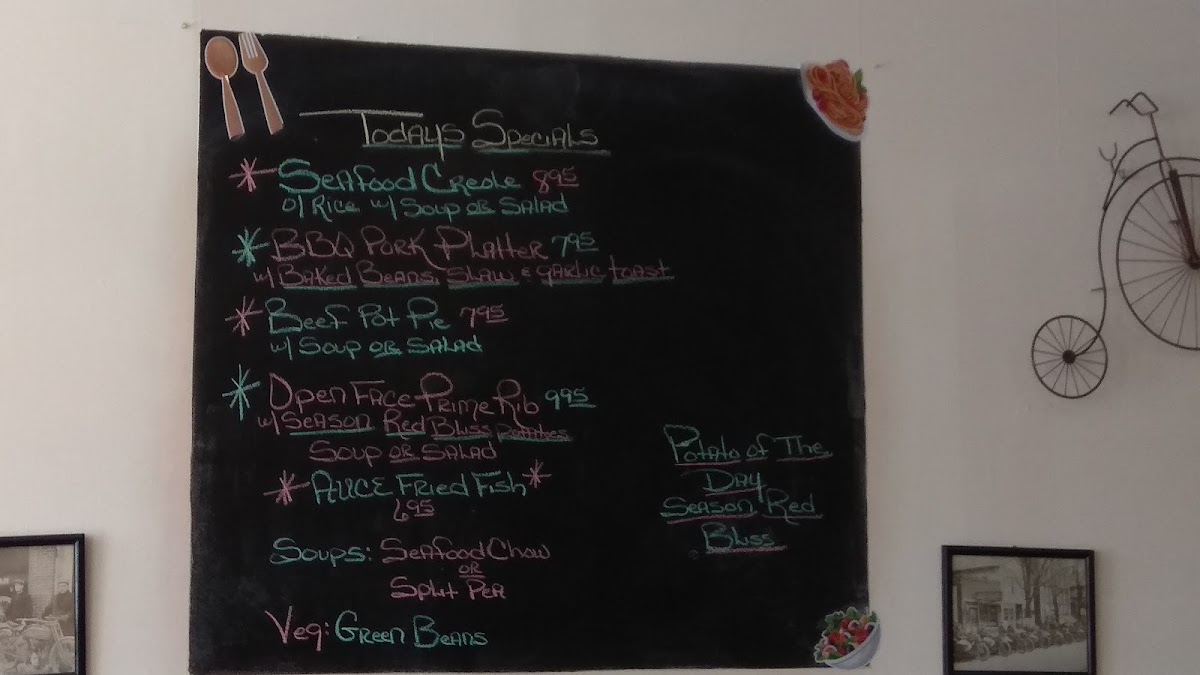 Todays Specials
* Seafood Creole 8.95
o/ Rice w/ Soup or Salad
* BBQ Pork Platter 7.95
w/ Baked Beans, Slaw & garlic toast
* Beef Pot Pie 7.95
w/ Soup or Salad
* Open Face Prime Rib 9.95
w/ Season Red Bliss potatoes
Soup or Salad
* AUCE Fried Fish *
6.95
Soups: Seafood Chow
or
Split Pea
Veg: Green Beans
Potato of The
Day
Season Red
Bliss